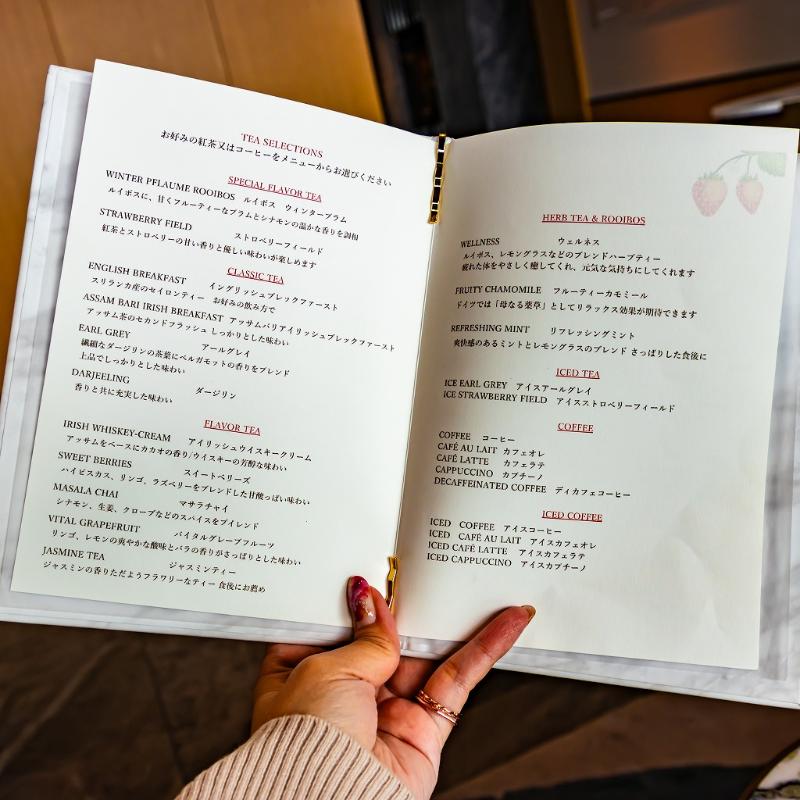 TEA SELECTIONS
お好みの紅茶又はコーヒーをメニューからお選びください
SPECIAL FLAVOR TEA
WINTER PFLAUME ROOIBOS ルイボス ウィンタープラム
ルイボスに、甘くフルーティーなプラムとシナモンの温かな香りを調和
STRAWBERRY FIELD ストロベリーフィールド
紅茶とストロベリーの甘い香りと優しい味わいが楽しめます
CLASSIC TEA
ENGLISH BREAKFAST イングリッシュブレックファースト
スリランカ産のセイロンティー お好みの飲み方で
ASSAM BARI IRISH BREAKFAST アッサムバリアイリッシュブレックファースト
アッサム茶のセカンドフラッシュ しっかりとした味わい
EARL GREY アールグレイ
繊細なダージリンの茶葉にベルガモットの香りをブレンド
上品でしっかりとした味わい
DARJEELING ダージリン
香りと共に充実した味わい
FLAVOR TEA
IRISH WHISKEY-CREAM アイリッシュウイスキークリーム
アッサムをベースにカカオの香り/ウイスキーの芳醇な味わい
SWEET BERRIES スイートベリーズ
ハイビスカス、リンゴ、ラズベリーをブレンドした甘酸っぱい味わい
MASALA CHAI マサラチャイ
シナモン、生姜、クローブなどのスパイスをブイレンド
VITAL GRAPEFRUIT バイタルグレープフルーツ
リンゴ、レモンの爽やかな酸味とバラの香りがさっぱりとした味わい
JASMINE TEA ジャスミンティー
ジャスミンの香りただようフラワリーなティー 食後にお薦め
HERB TEA & ROOIBOS
WELLNESS ウェルネス
ルイボス、レモングラスなどのブレンドハーブティー
疲れた体をやさしく癒してくれ、元気な気持ちにしてくれます
FRUITY CHAMOMILE フルーティーカモミール
ドイツでは「母なる薬草」としてリラックス効果が期待できます
REFRESHING MINT リフレッシングミント
爽快感のあるミントとレモングラスのブレンド さっぱりした食後に
ICED TEA
ICE EARL GREY アイスアールグレイ
ICE STRAWBERRY FIELD アイスストロベリーフィールド
COFFEE
COFFEE コーヒー
CAFÉ AU LAIT カフェオレ
CAFÉ LATTE カフェラテ
CAPPUCCINO カプチーノ
DECAFFEINATED COFFEE ディカフェコーヒー
ICED COFFEE
ICED COFFEE アイスコーヒー
ICED CAFÉ AU LAIT アイスカフェオレ
ICED CAFÉ LATTE アイスカフェラテ
ICED CAPPUCCINO アイスカプチーノ